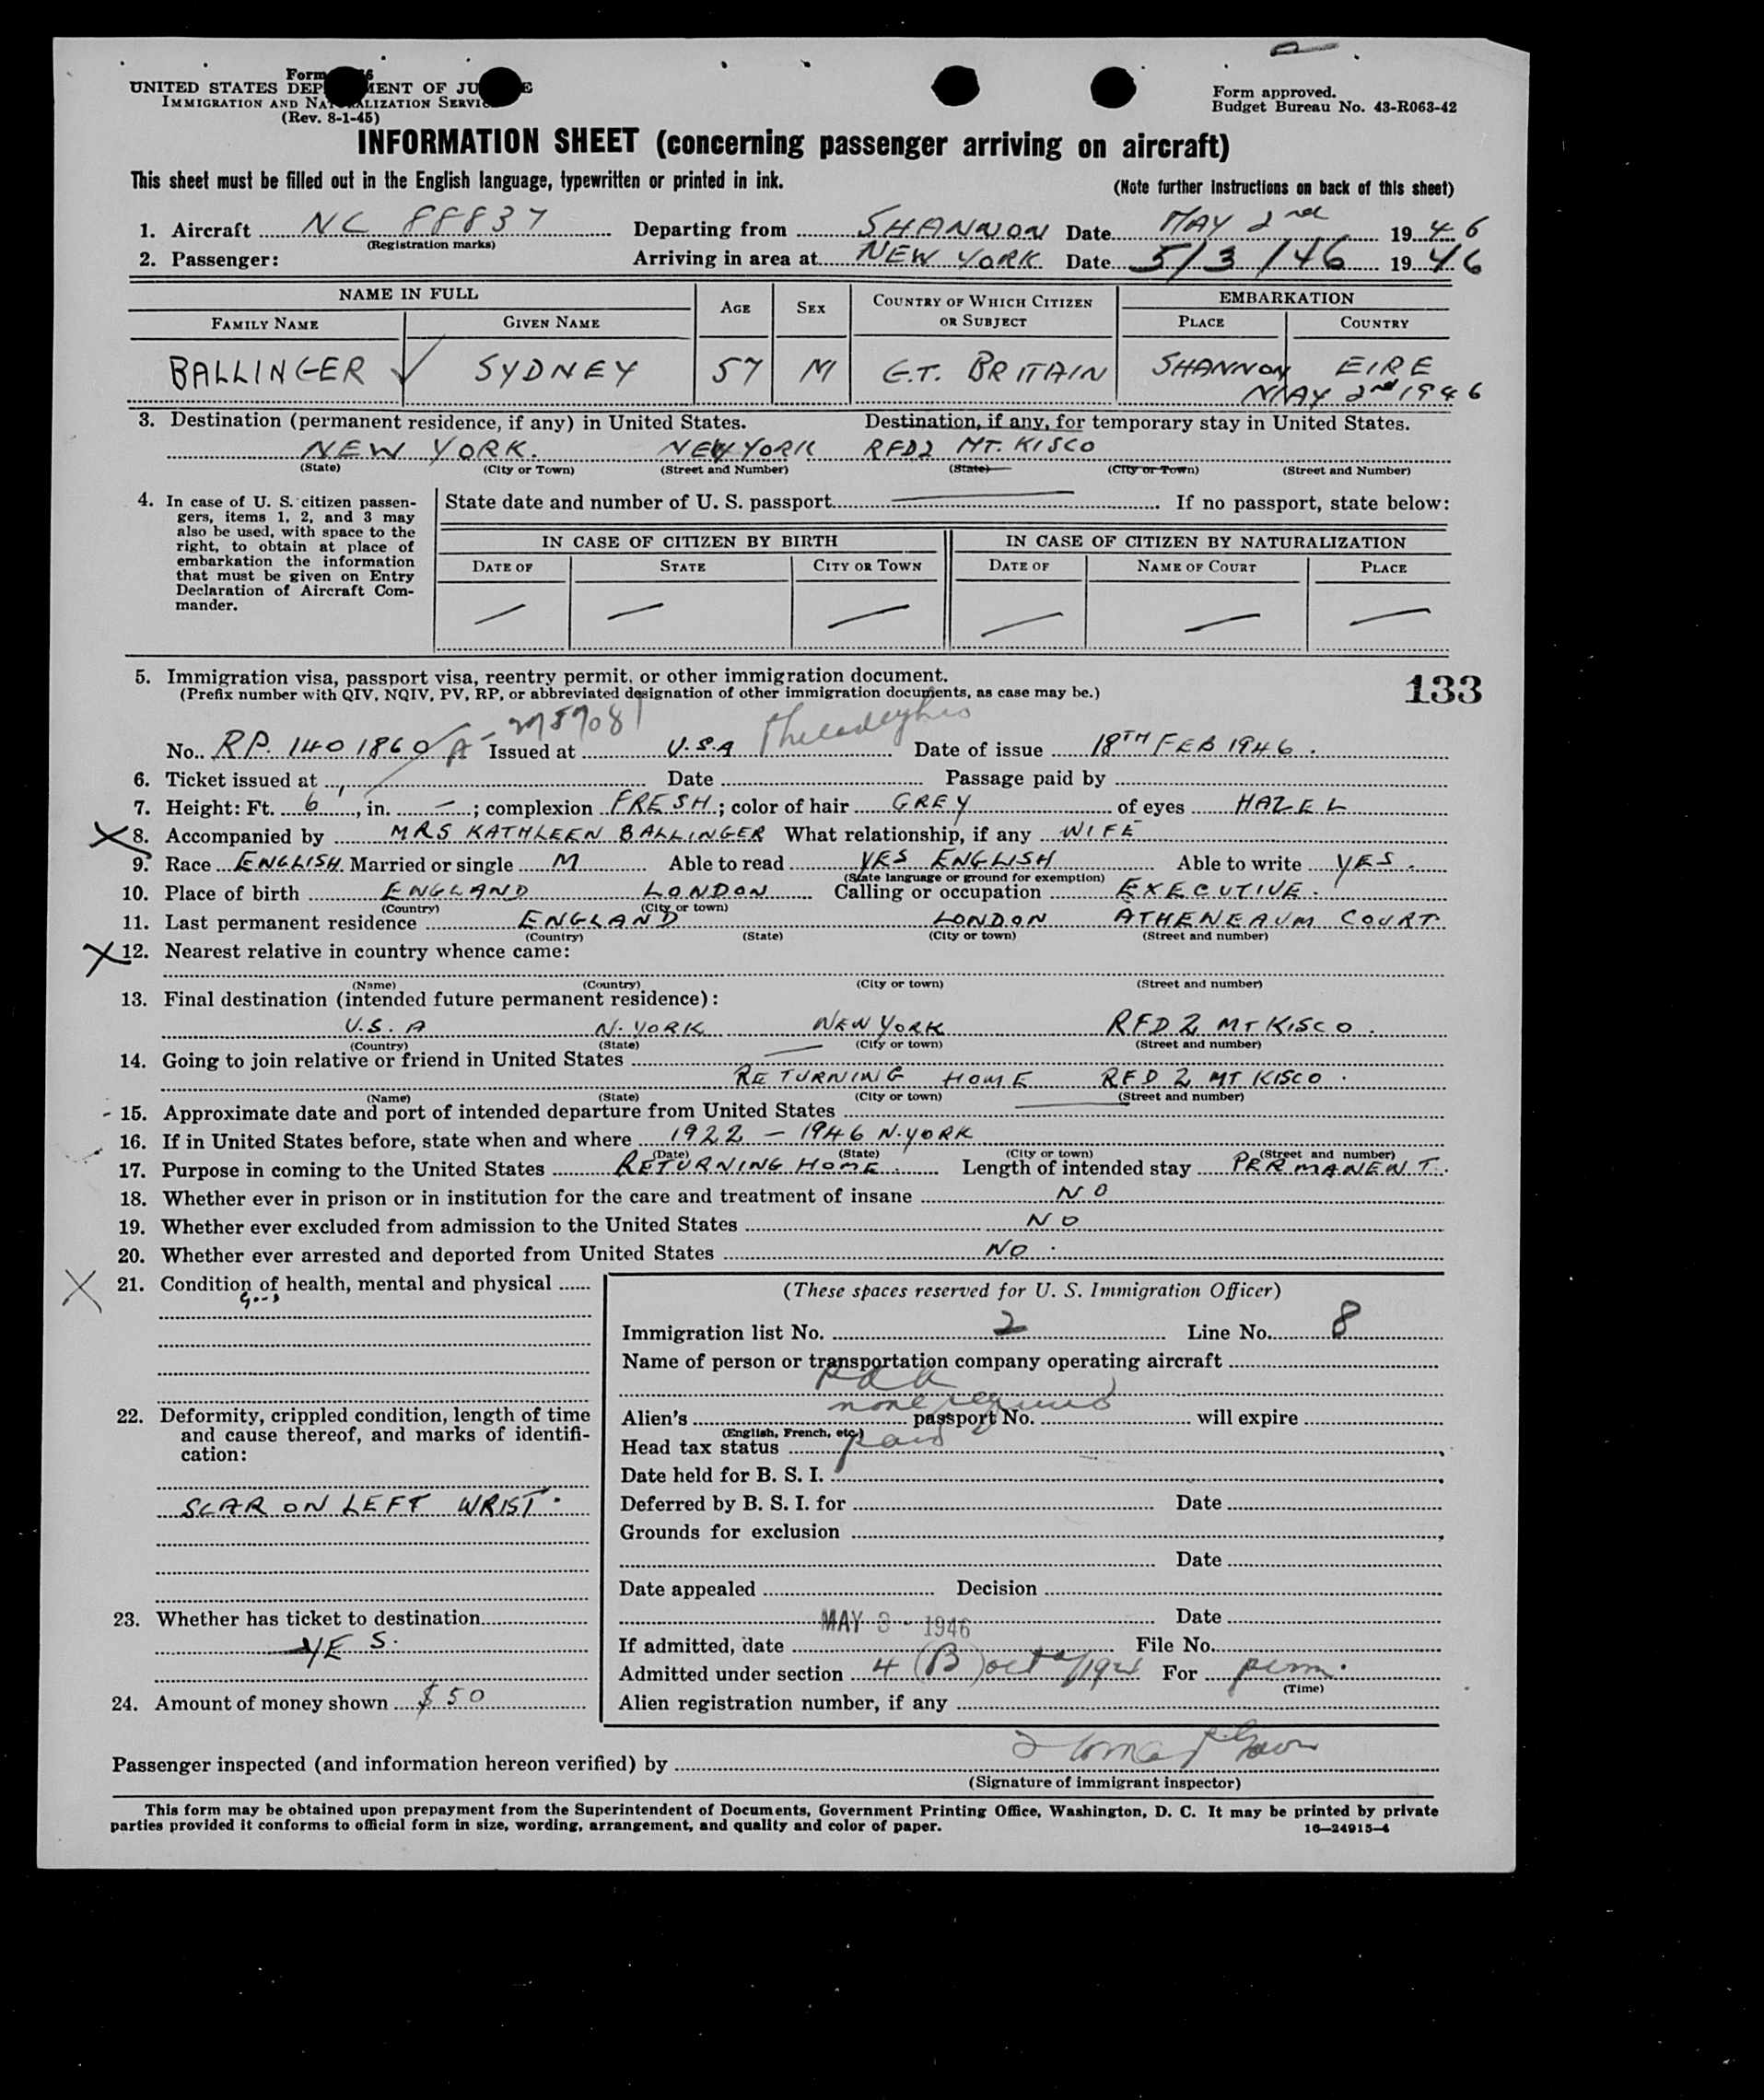 Form
UNITED STATES DEP MENT OF JU E
IMMIGRATION AND NAT ALIZATION SERVIC
(Rev. 8-1-45)
Form approved.
Budget Bureau No. 43-R063-42
INFORMATION SHEET (concerning passenger arriving on aircraft)
This sheet must be filled out in the English language, typewritten or printed in ink. (Note further instructions on back of this sheet)
1. Aircraft NC 88837 Departing from SHANNON Date MAY 2nd 1946
(Registration marks)
2. Passenger: Arriving in area at NEW YORK Date 5/3/46 1946
NAME IN FULL AGE SEX COUNTRY OF WHICH CITIZEN OR SUBJECT EMBARKATION
FAMILY NAME GIVEN NAME PLACE COUNTRY
BALLINGER ✓ SYDNEY 57 M GT. BRITAIN SHANNON EIRE
MAY 2nd 1946
3. Destination (permanent residence, if any) in United States. Destination, if any, for temporary stay in United States.
NEW YORK. NEW YORK RFD2 MT. KISCO
(State) (City or Town) (Street and Number) (State) (City or Town) (Street and Number)
4. In case of U. S. citizen passen-
gers, items 1, 2, and 3 may
also be used, with space to the
right, to obtain at place of
embarkation the information
that must be given on Entry
Declaration of Aircraft Com-
mander.
State date and number of U. S. passport If no passport, state below:
IN CASE OF CITIZEN BY BIRTH IN CASE OF CITIZEN BY NATURALIZATION
DATE OF STATE CITY OR TOWN DATE OF NAME OF COURT PLACE
5. Immigration visa, passport visa, reentry permit, or other immigration document.
(Prefix number with QIV, NQIV, PV, RP, or abbreviated designation of other immigration documents, as case may be.)
133
No. RP. 1401860 Issued at U.S.A Date of issue 18TH FEB 1946.
6. Ticket issued at Date Passage paid by
7. Height: Ft. 6, in. —; complexion FRESH; color of hair GREY of eyes HAZEL
8. Accompanied by MRS KATHLEEN BALLINGER What relationship, if any WIFE
9. Race ENGLISH Married or single M Able to read YES ENGLISH Able to write YES.
(State language or ground for exemption)
10. Place of birth ENGLAND LONDON Calling or occupation EXECUTIVE.
(Country) (City or town)
11. Last permanent residence ENGLAND LONDON ATHENEAUM COURT
(Country) (State) (City or town) (Street and number)
12. Nearest relative in country whence came:
(Name) (Country) (City or town) (Street and number)
13. Final destination (intended future permanent residence):
U.S.A N. YORK NEW YORK RFD 2 MT KISCO.
(Country) (State) (City or town) (Street and number)
14. Going to join relative or friend in United States
RETURNING HOME RFD 2 MT KISCO.
(Name) (State) (City or town) (Street and number)
15. Approximate date and port of intended departure from United States
16. If in United States before, state when and where 1922 - 1946 N. YORK
(Date) (State) (City or town) (Street and number)
17. Purpose in coming to the United States RETURNING HOME. Length of intended stay PERMANENT.
18. Whether ever in prison or in institution for the care and treatment of insane NO
19. Whether ever excluded from admission to the United States NO
20. Whether ever arrested and deported from United States NO.
21. Condition of health, mental and physical
Good
22. Deformity, crippled condition, length of time
and cause thereof, and marks of identifi-
cation:
SCAR ON LEFT WRIST.
23. Whether has ticket to destination
YES.
24. Amount of money shown $50
(These spaces reserved for U. S. Immigration Officer)
Immigration list No. 2 Line No. 8
Name of person or transportation company operating aircraft
none required
Alien's passport No. will expire
(English, French, etc.)
Head tax status paid
Date held for B. S. I.
Deferred by B. S. I. for Date
Grounds for exclusion
Date
Date appealed Decision
Date
MAY 3 - 1946
If admitted, date File No.
Admitted under section 4 (B) For perm.
(Time)
Alien registration number, if any
Passenger inspected (and information hereon verified) by
(Signature of immigrant inspector)
This form may be obtained upon prepayment from the Superintendent of Documents, Government Printing Office, Washington, D. C. It may be printed by private
parties provided it conforms to official form in size, wording, arrangement, and quality and color of paper. 16—24915-4